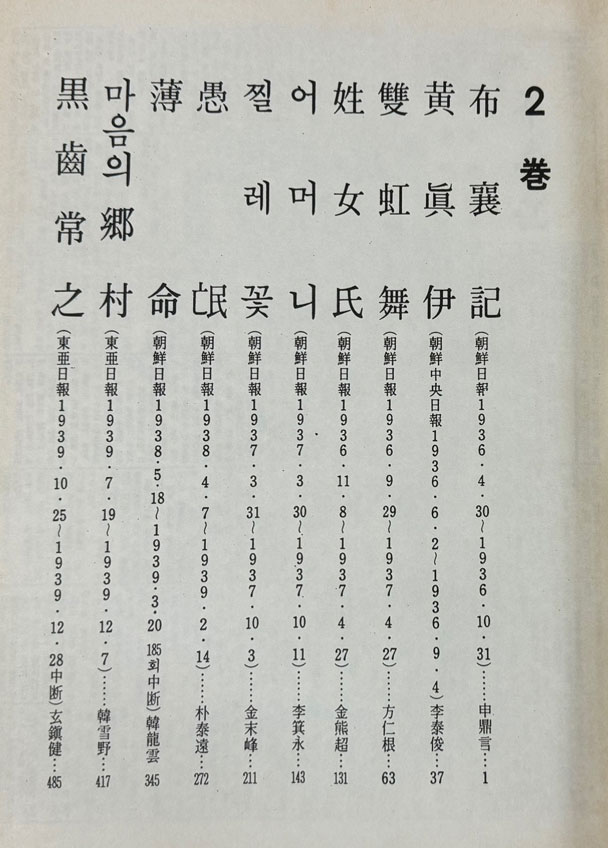 2巻
布襄記(朝鮮日報1936·4·30~1936·10·31)……申鼎言…1
黄眞伊(朝鮮中央日報1936·6·2~1936·9·4)李泰俊…37
雙虹舞(朝鮮日報1936·9·29~1937·4·27)……方仁根…63
姓女氏(朝鮮日報1936·11·8~1937·4·27)……金熊超…131
어머니(朝鮮日報1937·3·30~1937·10·11)……李箕永…143
찔레꽃(朝鮮日報1937·3·31~1937·10·3)……金末峰…211
愚氓(朝鮮日報1938·4·7~1939·2·14)……朴泰遠…272
薄命(朝鮮日報1938·5·18~1939·3·20 185회中断)韓龍雲 345
마음의郷村(東亜日報1939·7·19~1939·12·7)……韓雪野…417
黒齒常之(東亜日報1939·10·25~1939·12·28中断)玄鎭健…485